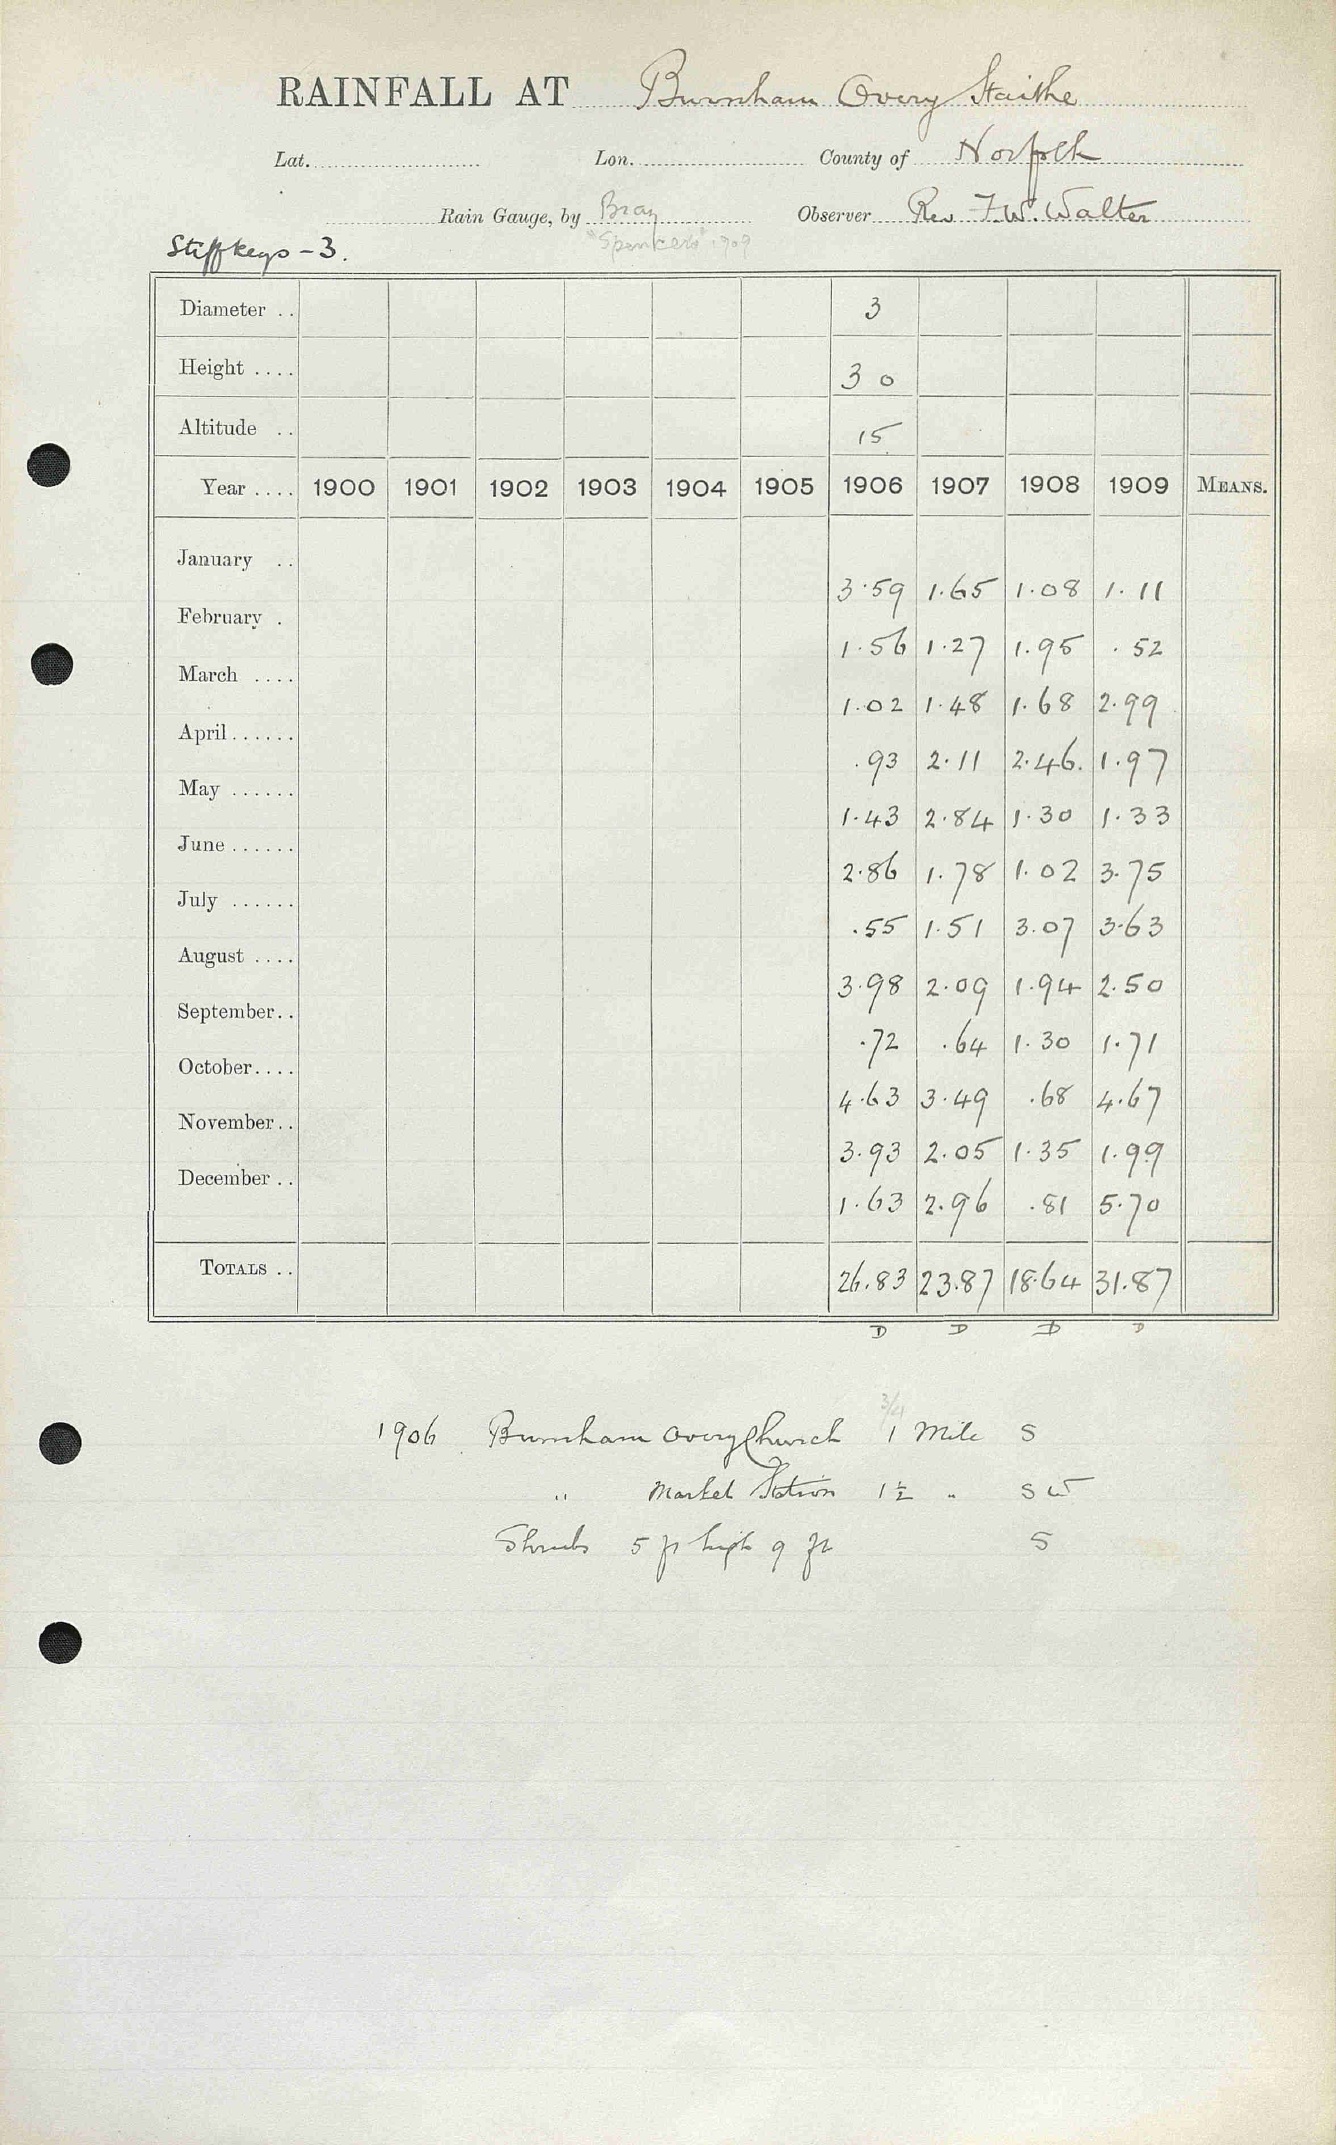 RAINFALL AT Burnham Overy Staithe
Lat. Lon. County of Norfolk
Rain Gauge, by Bray Observer Rev F.W. Walter
Stiffkeys - 3. 1909
Diameter .. 3
Height .... 3 0
Altitude .. 15
Year .... 1900 1901 1902 1903 1904 1905 1906 1907 1908 1909 MEANS.
January .. 3.59 1.65 1.08 1.11
February . 1.56 1.27 1.95 .52
March .... 1.02 1.48 1.68 2.99
April...... .93 2.11 2.46. 1.97
May ...... 1.43 2.84 1.30 1.33
June ...... 2.86 1.78 1.02 3.75
July ...... .55 1.51 3.07 3.63
August .... 3.98 2.09 1.94 2.50
September.. .72 .64 1.30 1.71
October.... 4.63 3.49 .68 4.67
November.. 3.93 2.05 1.35 1.99
December .. 1.63 2.96 .81 5.70
TOTALS .. 26.83 23.87 18.64 31.87
D D D D
3/4
1906 Burnham Overy Church 1 Mile S
" Market Station 1½ " SW
Shrubs 5 ft high 9 ft S